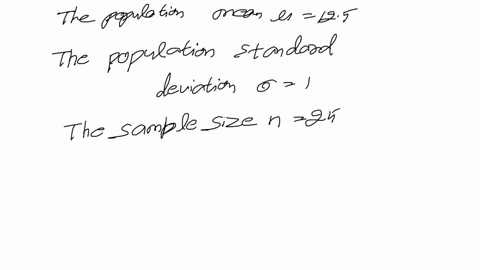 The population mean μ = 12.5
The population standard
deviation σ = 1
The sample size n = 25